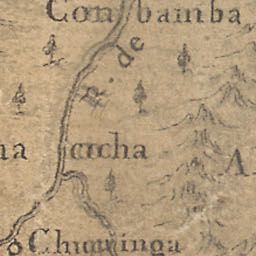 Conbamba
R. de
na cocha A
Chuquinga